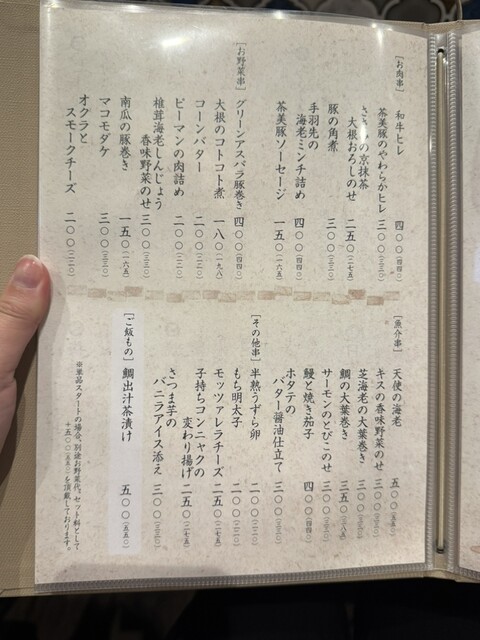 [お肉串]
和牛ヒレ 四〇〇(四四〇)
茶美豚のやわらかヒレ 三〇〇(三三〇)
ささみの京抹茶
大根おろしのせ 二五〇(二七五)
豚の角煮 三〇〇(三三〇)
手羽先の
海老ミンチ詰め 四〇〇(四四〇)
茶美豚ソーセージ 一五〇(一六五)
[お野菜串]
グリーンアスパラ豚巻き 四〇〇(四四〇)
大根のコトコト煮 一八〇(一九八)
コーンバター 二〇〇(二二〇)
ピーマンの肉詰め 二〇〇(二二〇)
椎茸海老しんじょう
香味野菜のせ 三〇〇(三三〇)
南瓜の豚巻き 一五〇(一六五)
マコモダケ 三〇〇(三三〇)
オクラと
スモークチーズ 二〇〇(二二〇)
[魚介串]
天使の海老 五〇〇(五五〇)
キスの香味野菜のせ 三〇〇(三三〇)
芝海老の大葉巻き 三〇〇(三三〇)
鯛の大葉巻き 三五〇(三八五)
サーモンのとびこのせ 三〇〇(三三〇)
鰻と焼き茄子 四〇〇(四四〇)
ホタテの
バター醤油仕立て 三〇〇(三三〇)
[その他串]
半熟うずら卵 二〇〇(二二〇)
もち明太子 二〇〇(二二〇)
モッツァレラチーズ 二五〇(二七五)
子持ちコンニャクの
変わり揚げ 二五〇(二七五)
さつま芋の
バニラアイス添え 三〇〇(三三〇)
[ご飯もの]
鯛出汁茶漬け 五〇〇(五五〇)
※単品スタートの場合、別途お野菜代、セット料として
+五〇〇(五五〇)を頂戴しております。